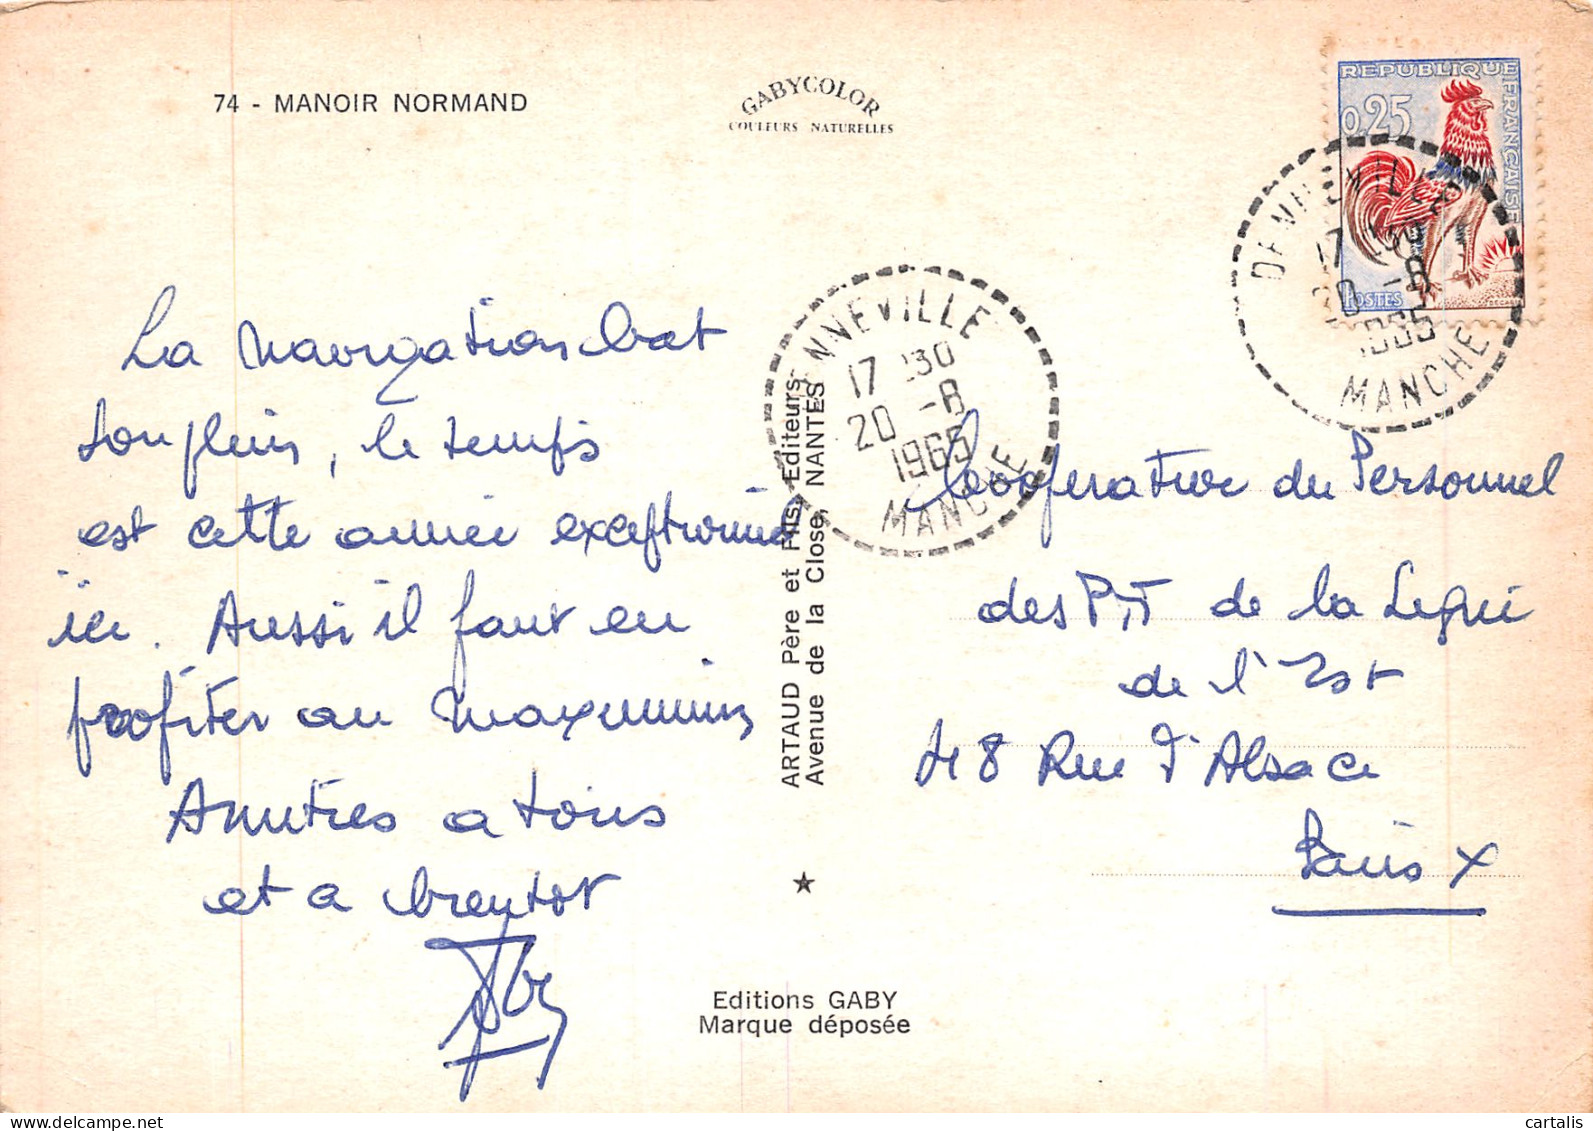 74 - MANOIR NORMAND
GABYCOLOR
COULEURS NATURELLES
REPUBLIQUE FRANÇAISE
0,25
POSTES
DENNEVILLE
17 H30
20 -8
1965
MANCHE
DENNEVILLE
17 H30
20 -8
1965
MANCHE
La navigation bat
son plein, le temps
est cette année exceptionnel
ici. Aussi il faut en
profiter au maximum
Amitiés a tous
et a bientot
ARTAUD Père et Fils, Editeurs
Avenue de la Close, NANTES
Coopérative du Personnel
des PTT de la Ligne
de l'Est
48 Rue d'Alsace
Paris X
Editions GABY
Marque déposée
cartalis